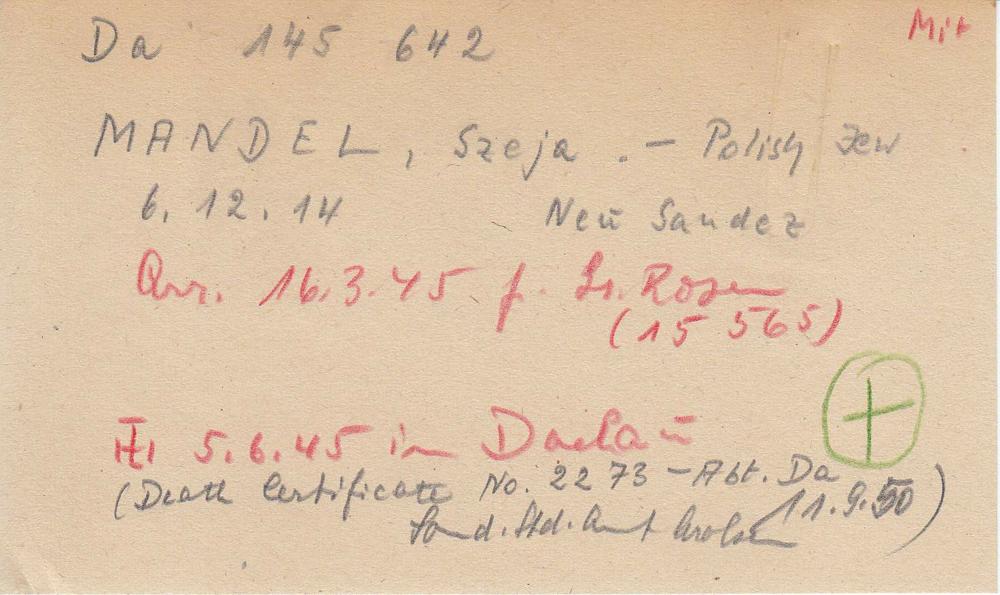 Mit
Da 145 642
MANDEL, Szeja. - Polish Jew
6.12.14 Neu Sandez
Arr. 16.3.45 f. Gr. Rosen
(15 565)
5.6.45 in Dachau
(Death Certificate No. 2273 - Abt. Da
Sond. Std. Amt Arolsen 11.9.50)